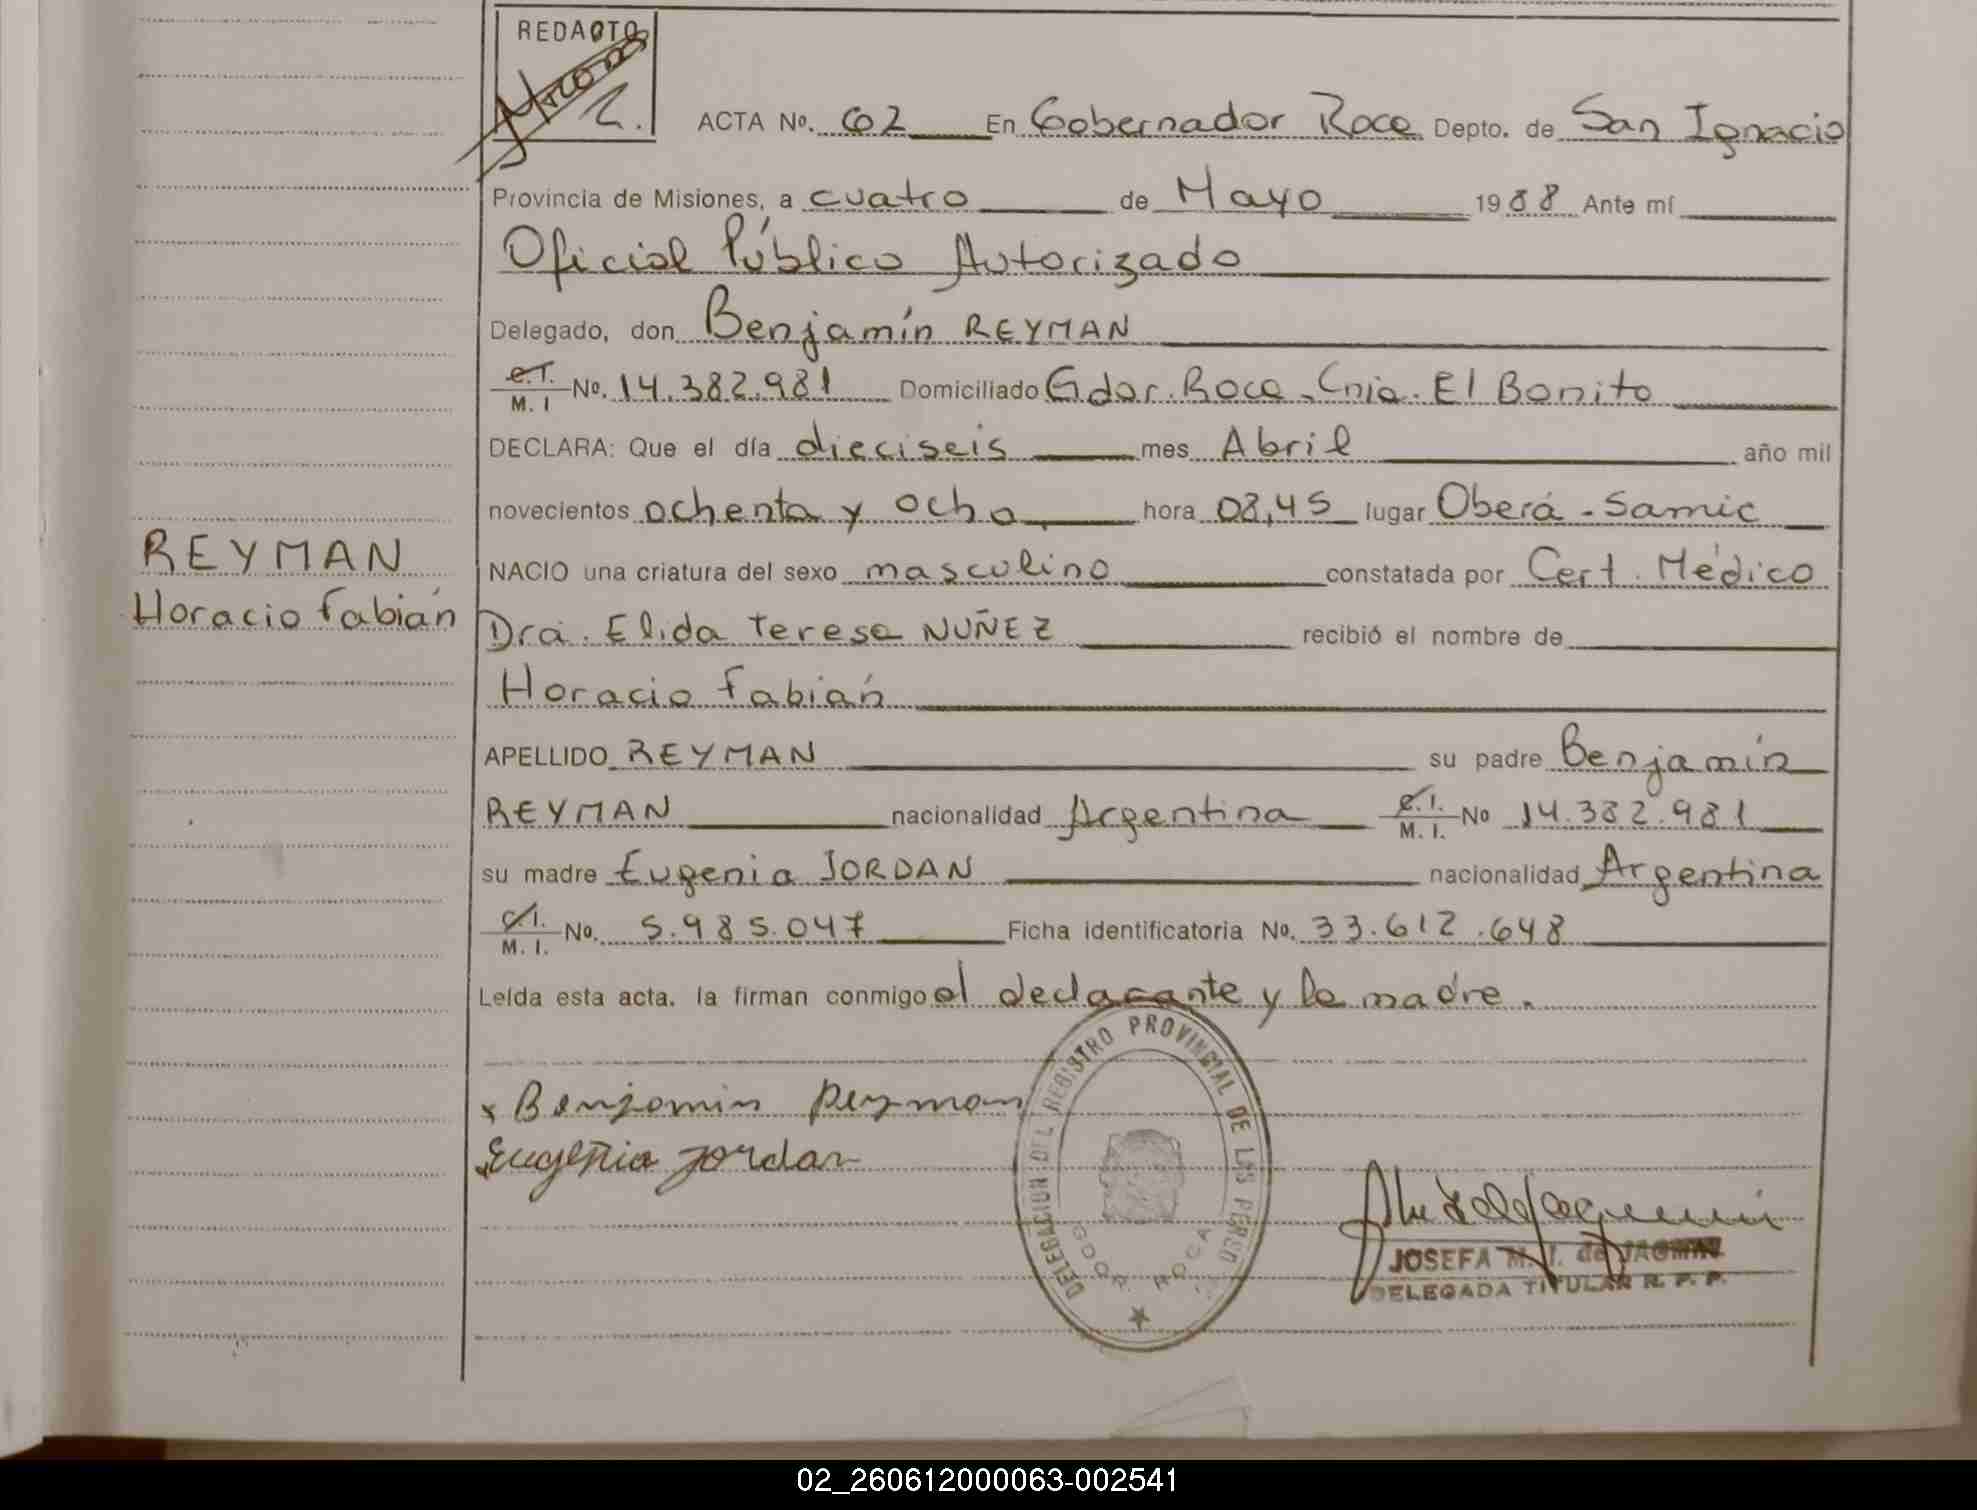 REDACTO
ACTA No. 62 En Gobernador Roca Depto. de San Ignacio
Provincia de Misiones, a cuatro de Mayo 1988 Ante mí
Oficial Público Autorizado
Delegado, don Benjamín REYMAN
C.I. M. I No. 14.382.981 Domiciliado Gdor. Roca - Cnia. El Bonito
DECLARA: Que el día dieciseis mes Abril año mil
novecientos ochenta y ocho hora 08,45 lugar Oberá - Samic
REYMAN
NACIO una criatura del sexo masculino constatada por Cert. Médico
Horacio Fabián
Dra. Elida Teresa NUÑEZ recibió el nombre de
Horacio Fabián
APELLIDO REYMAN su padre Benjamín
REYMAN nacionalidad Argentina C.I. M. I. No 14.382.981
su madre Eugenia JORDAN nacionalidad Argentina
C.I. M. I. No. 5.985.047 Ficha identificatoria No. 33.612.648
Leída esta acta, la firman conmigo el declarante y la madre.
x Benjamin Reyman
Eugenia Jordan
DELEGACION DEL REGISTRO PROVINCIAL DE LAS PERSO
GDOR. ROCA
JOSEFA M. de
DELEGADA TITULAR R. P. P.
02_260612000063-002541